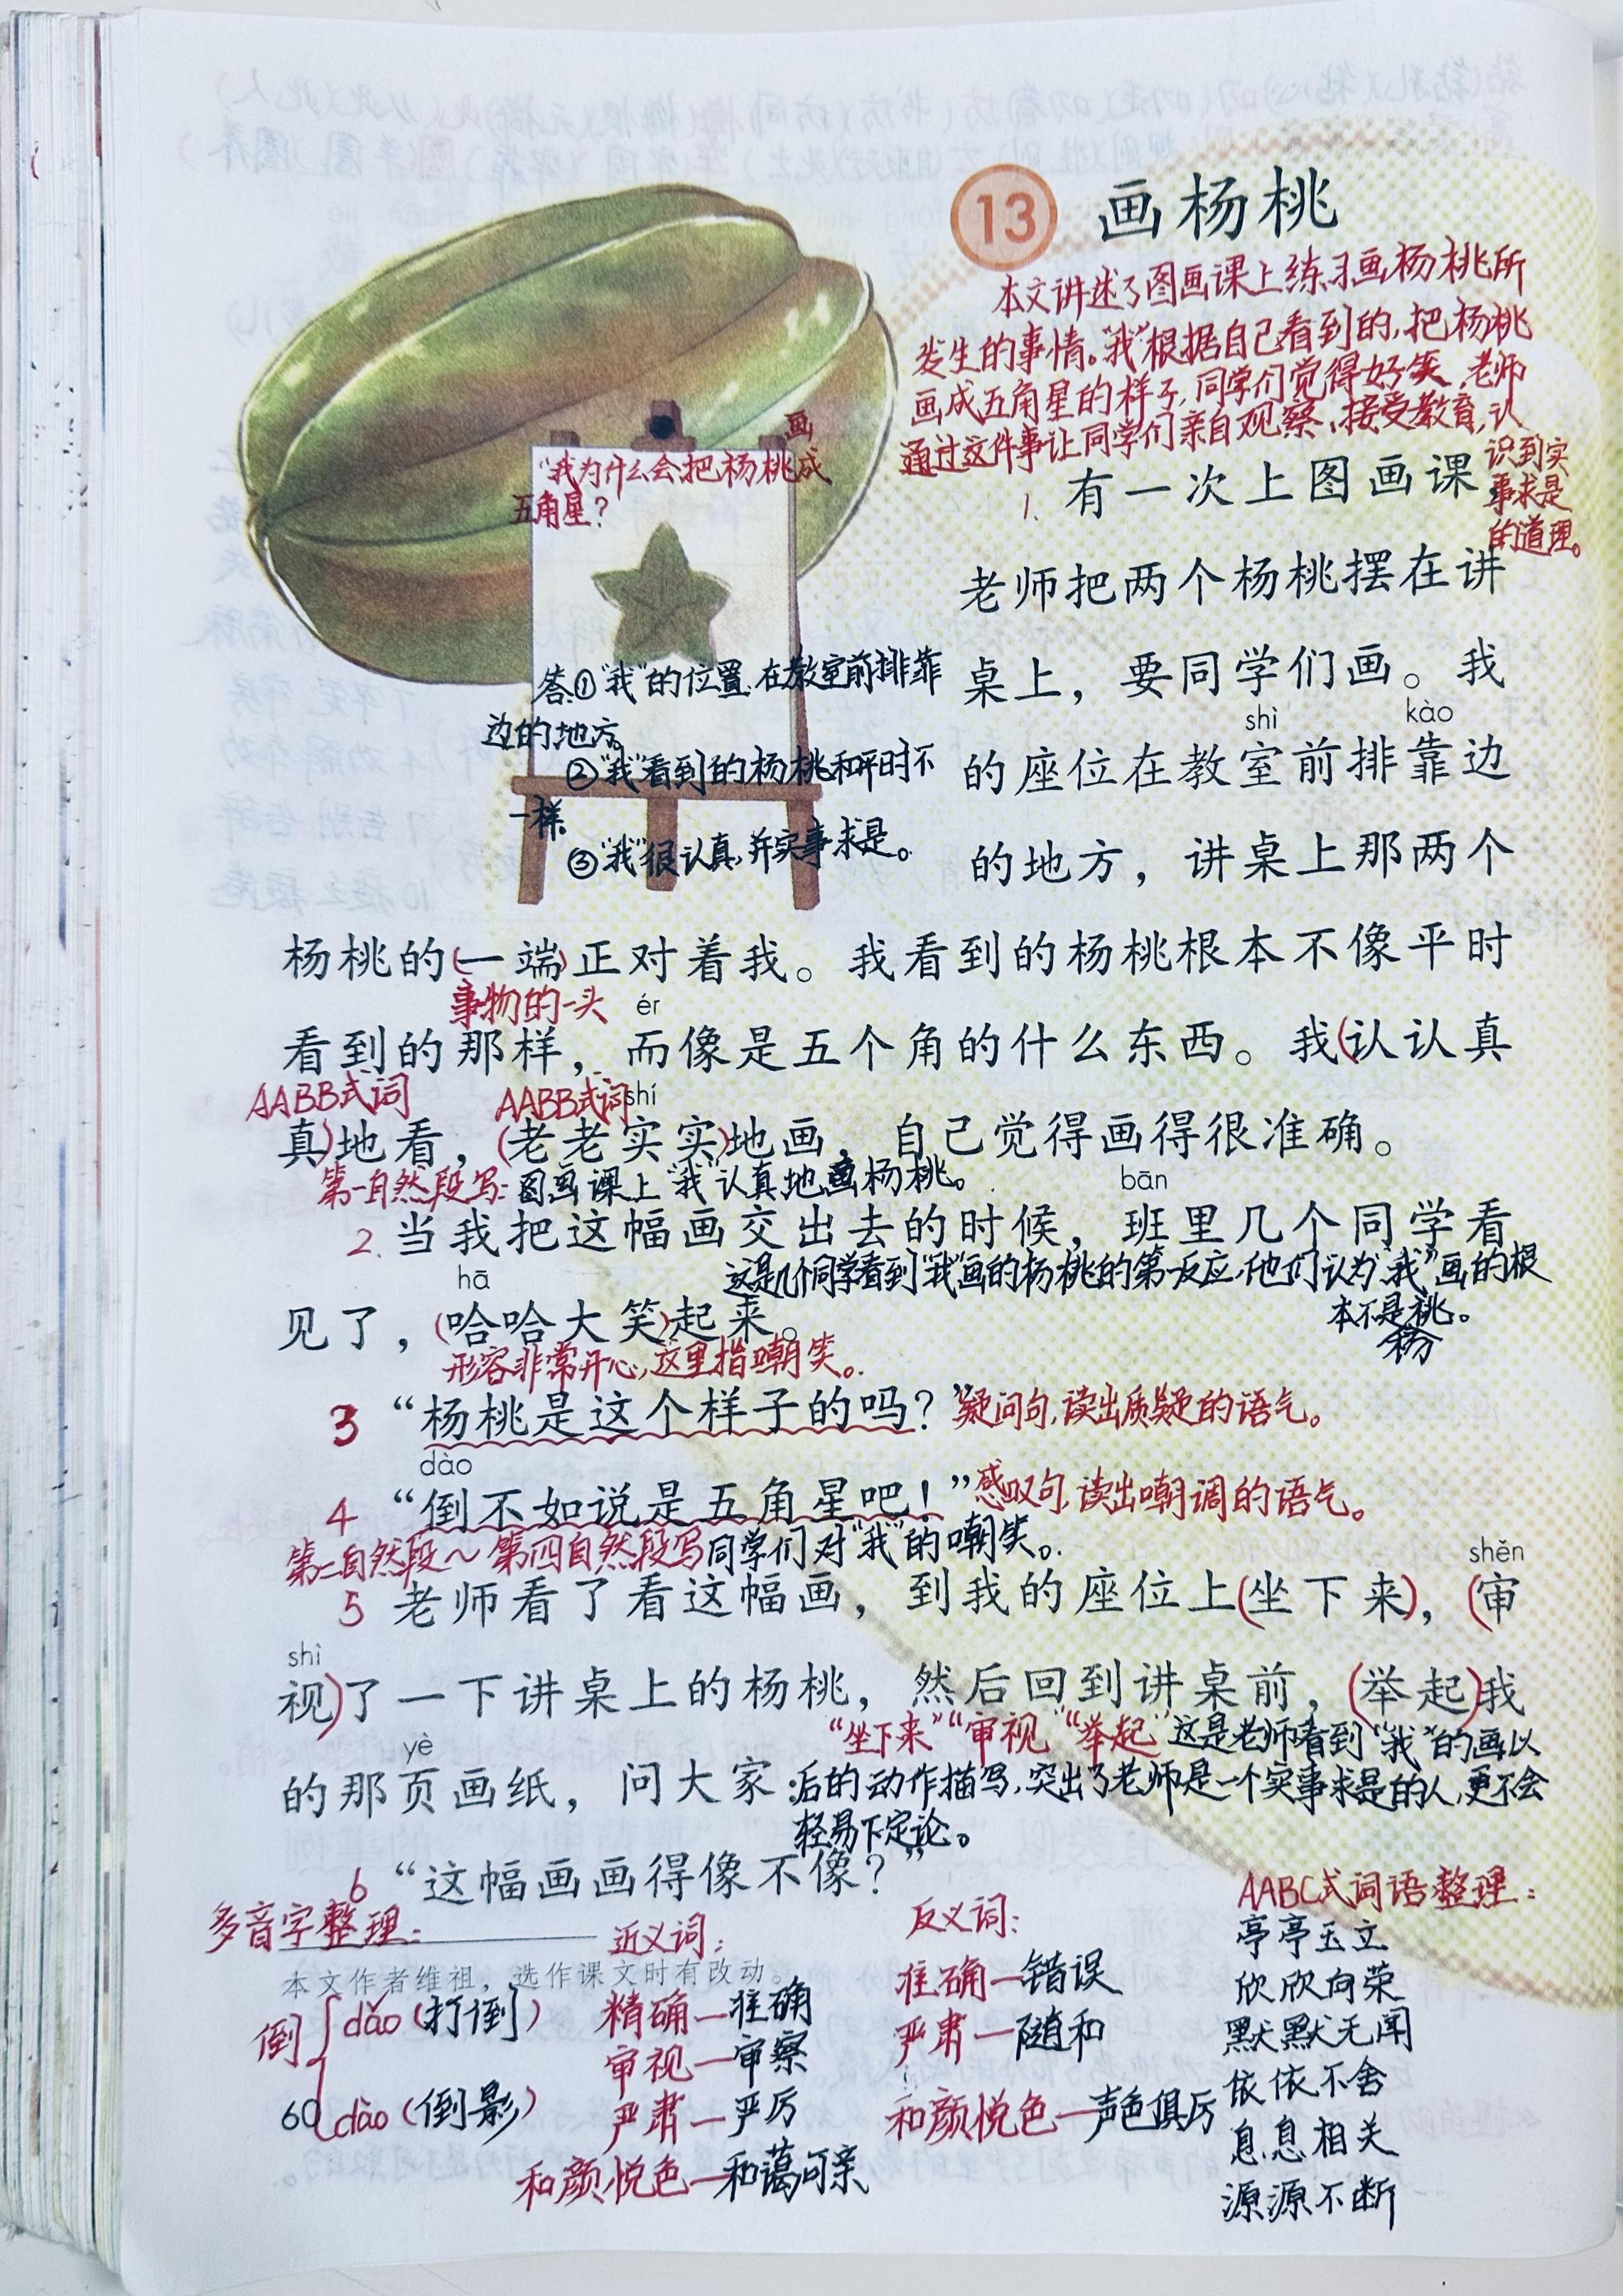 13 画杨桃
本文讲述了图画课上练习画杨桃所
发生的事情。“我”根据自己看到的,把杨桃
画成五角星的样子,同学们觉得好笑,老师
通过这件事让同学们亲自观察、接受教育,认
识到实
事求是
的道理。
“我为什么会把杨桃画成
五角星?
答①“我”的位置在教室前排靠
边的地方。
②“我”看到的杨桃和平时不
一样
③“我”很认真,并实事求是。
1. 有一次上图画课,
老师把两个杨桃摆在讲
桌上，要同学们画。我
shì kào
的座位在教室前排靠边
的地方，讲桌上那两个
杨桃的(一端)正对着我。我看到的杨桃根本不像平时
事物的一头 ér
看到的那样，而像是五个角的什么东西。我(认认真
AABB式词 AABB式词 shí
真)地看，(老老实实)地画，自己觉得画得很准确。
第一自然段写:图画课上“我”认真地画杨桃。
bān
2. 当我把这幅画交出去的时候，班里几个同学看
这是几个同学看到“我”画的杨桃的第一反应,他们认为“我”画的根
本不是杨桃。
hā
见了，(哈哈大笑)起来。
形容非常开心,这里指嘲笑。
3 “杨桃是这个样子的吗？”疑问句,读出质疑的语气。
dào
4 “倒不如说是五角星吧！”感叹句,读出嘲调的语气。
第二自然段～第四自然段写同学们对“我”的嘲笑。
shěn
5 老师看了看这幅画，到我的座位上(坐下来)，(审
shì
视)了一下讲桌上的杨桃，然后回到讲桌前，(举起)我
“坐下来”“审视”“举起”这是老师看到“我”的画以
yè
的那页画纸，问大家:
后的动作描写,突出了老师是一个实事求是的人,更不会
轻易下定论。
6 “这幅画画得像不像？”
多音字整理:
本文作者维祖，选作课文时有改动。
倒
dǎo(打倒)
dào(倒影)
60
近义词:
精确—准确
审视—审察
严肃—严厉
和颜悦色—和蔼可亲
反义词:
准确—错误
严肃—随和
和颜悦色—声色俱厉
AABC式词语整理:
亭亭玉立
欣欣向荣
默默无闻
依依不舍
息息相关
源源不断